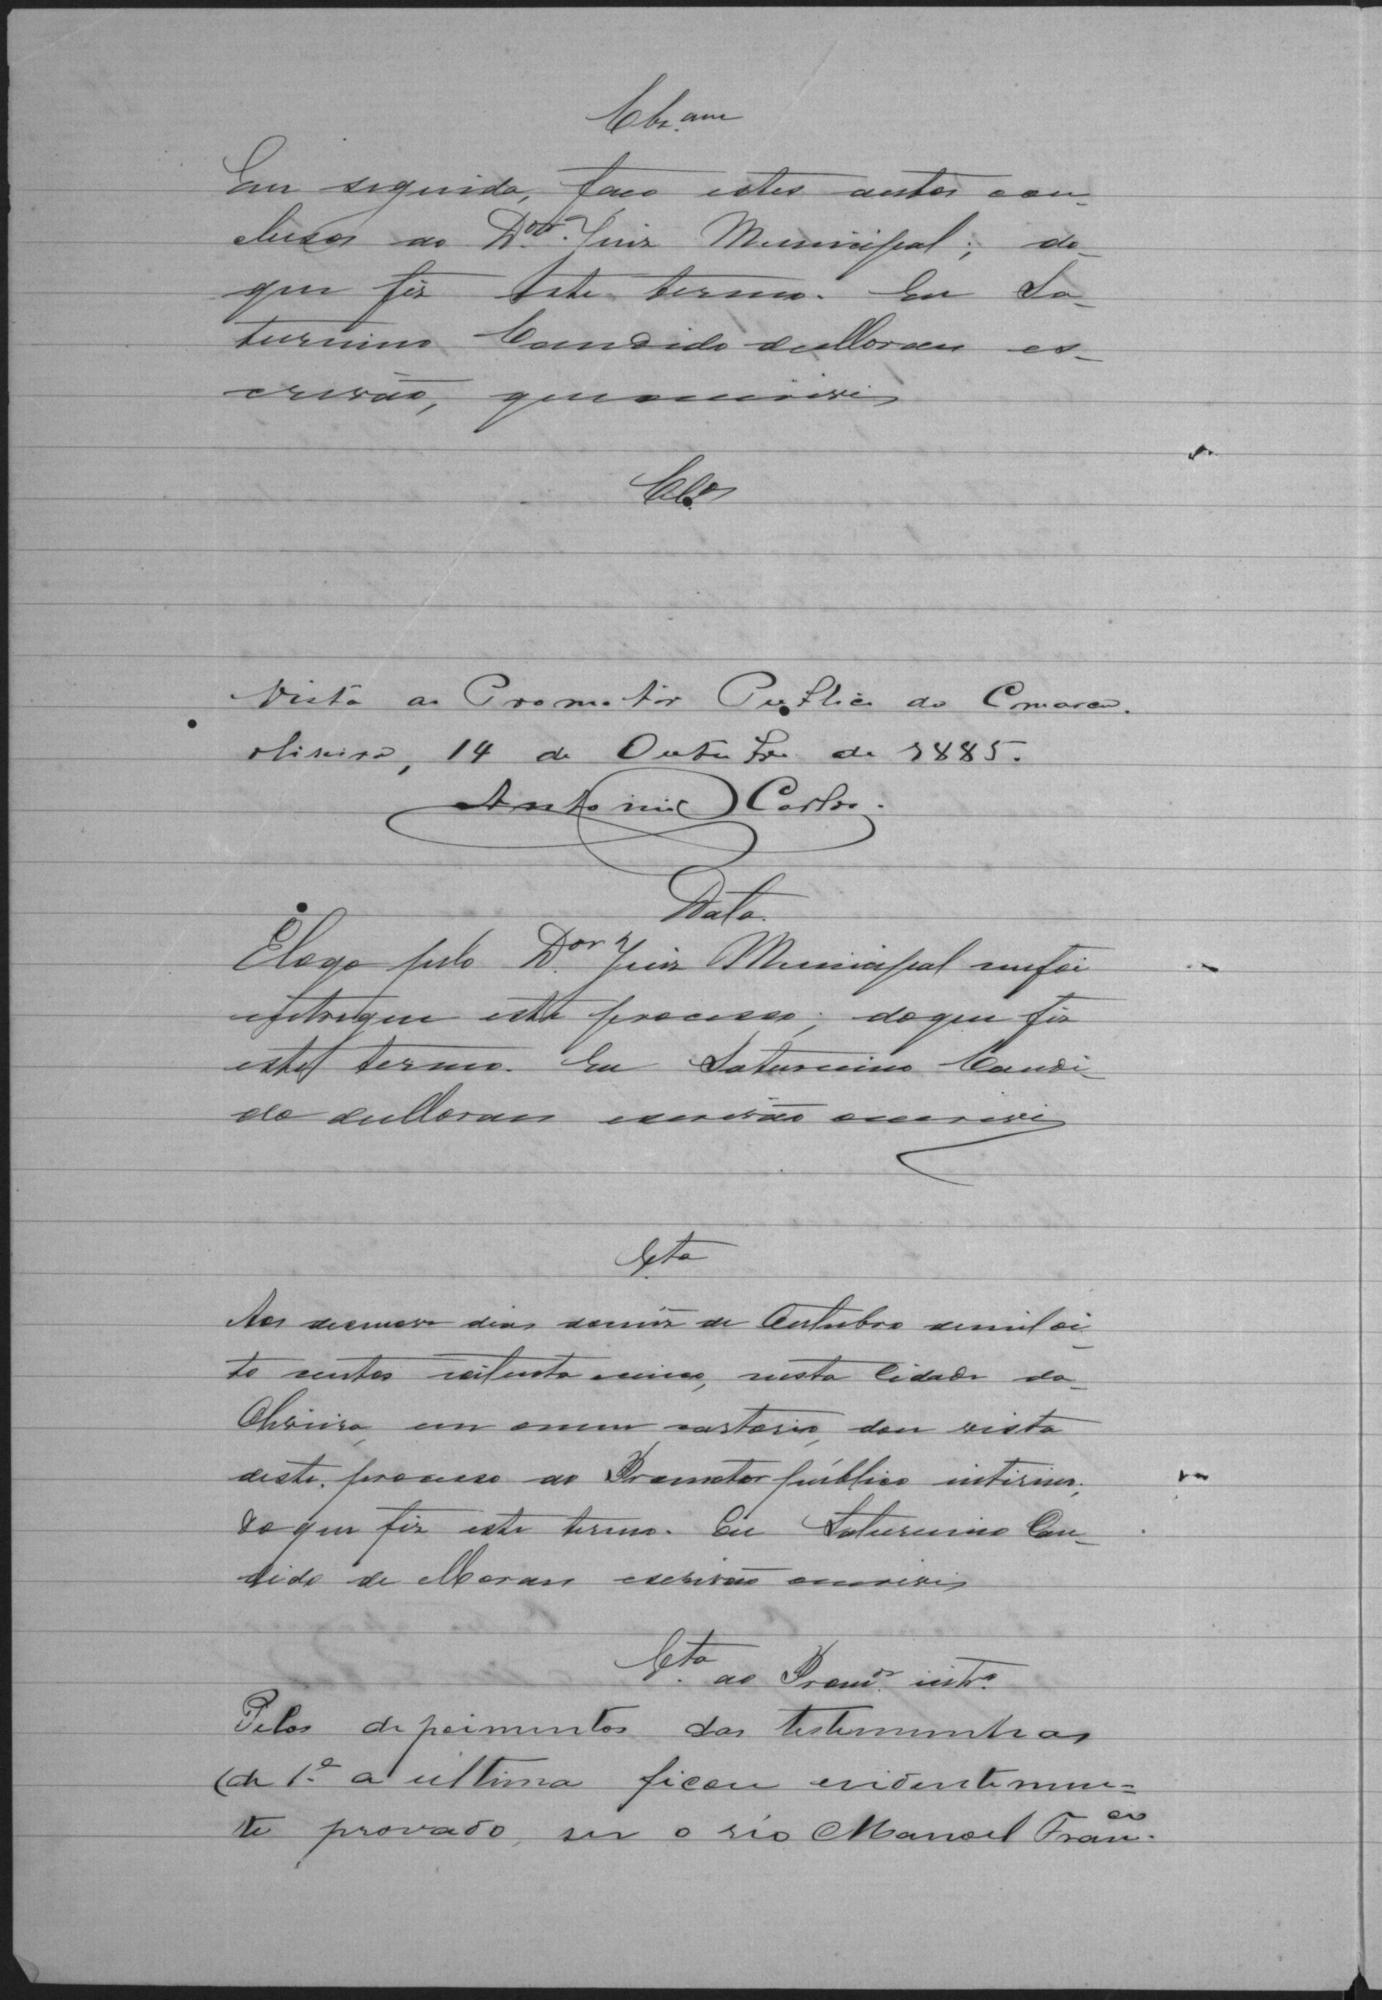 Cls.am
Em seguida, faço estes autos con-
clusos ao D.or Juiz Municipal; do
que fiz este termo. Eu Sa-
turnino Candido de Moraes es-
crivão, que escrevi
Cl.os
Vista ao Promotor Publico da Comarca.
Oliveira, 14 de Outubro de 1885.
Antonio Carlos.
Data.
E logo pelo D.or Juiz Municipal me foi
entregue este processo; do que fiz
este termo. Eu Saturnino Candi-
do de Moraes escrivão escrevi
V.ta
Aos dias do mez de Outubro de mil oi-
to centos oitenta e cinco, nesta Cidade da
Oliveira em o meu cartorio, dou vista
deste processo ao Promotor publico interino;
do que fiz este termo. Eu Saturnino Can-
dido de Moraes escrivão o escrevi
V.ta ao Prom.or int.o
Pelos depoimentos das testemunhas
(da 1.ª a ultima ficou evidentemen=
te provado, ser o réo Manoel Fran.co